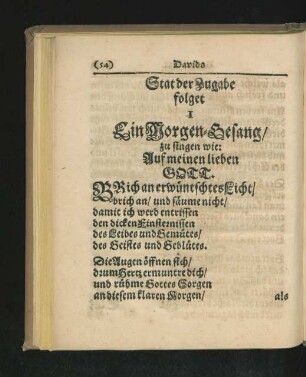 (54) Davids
Stat der Zugabe
folget
I
Ein Morgen-Gesang/
zu singen wie:
Auf meinen lieben
GOTT.
BRich an erwüntschtes Licht/
brich an/ und säume nicht/
damit ich werd entrissen
den dicken Finsternissen
des Leibes und Gemütes/
des Geistes und Geblütes.
Die Augen öffnen sich/
drum Hertz ermuntre dich/
und rühme Gottes Sorgen
an diesem klaren Morgen/
als